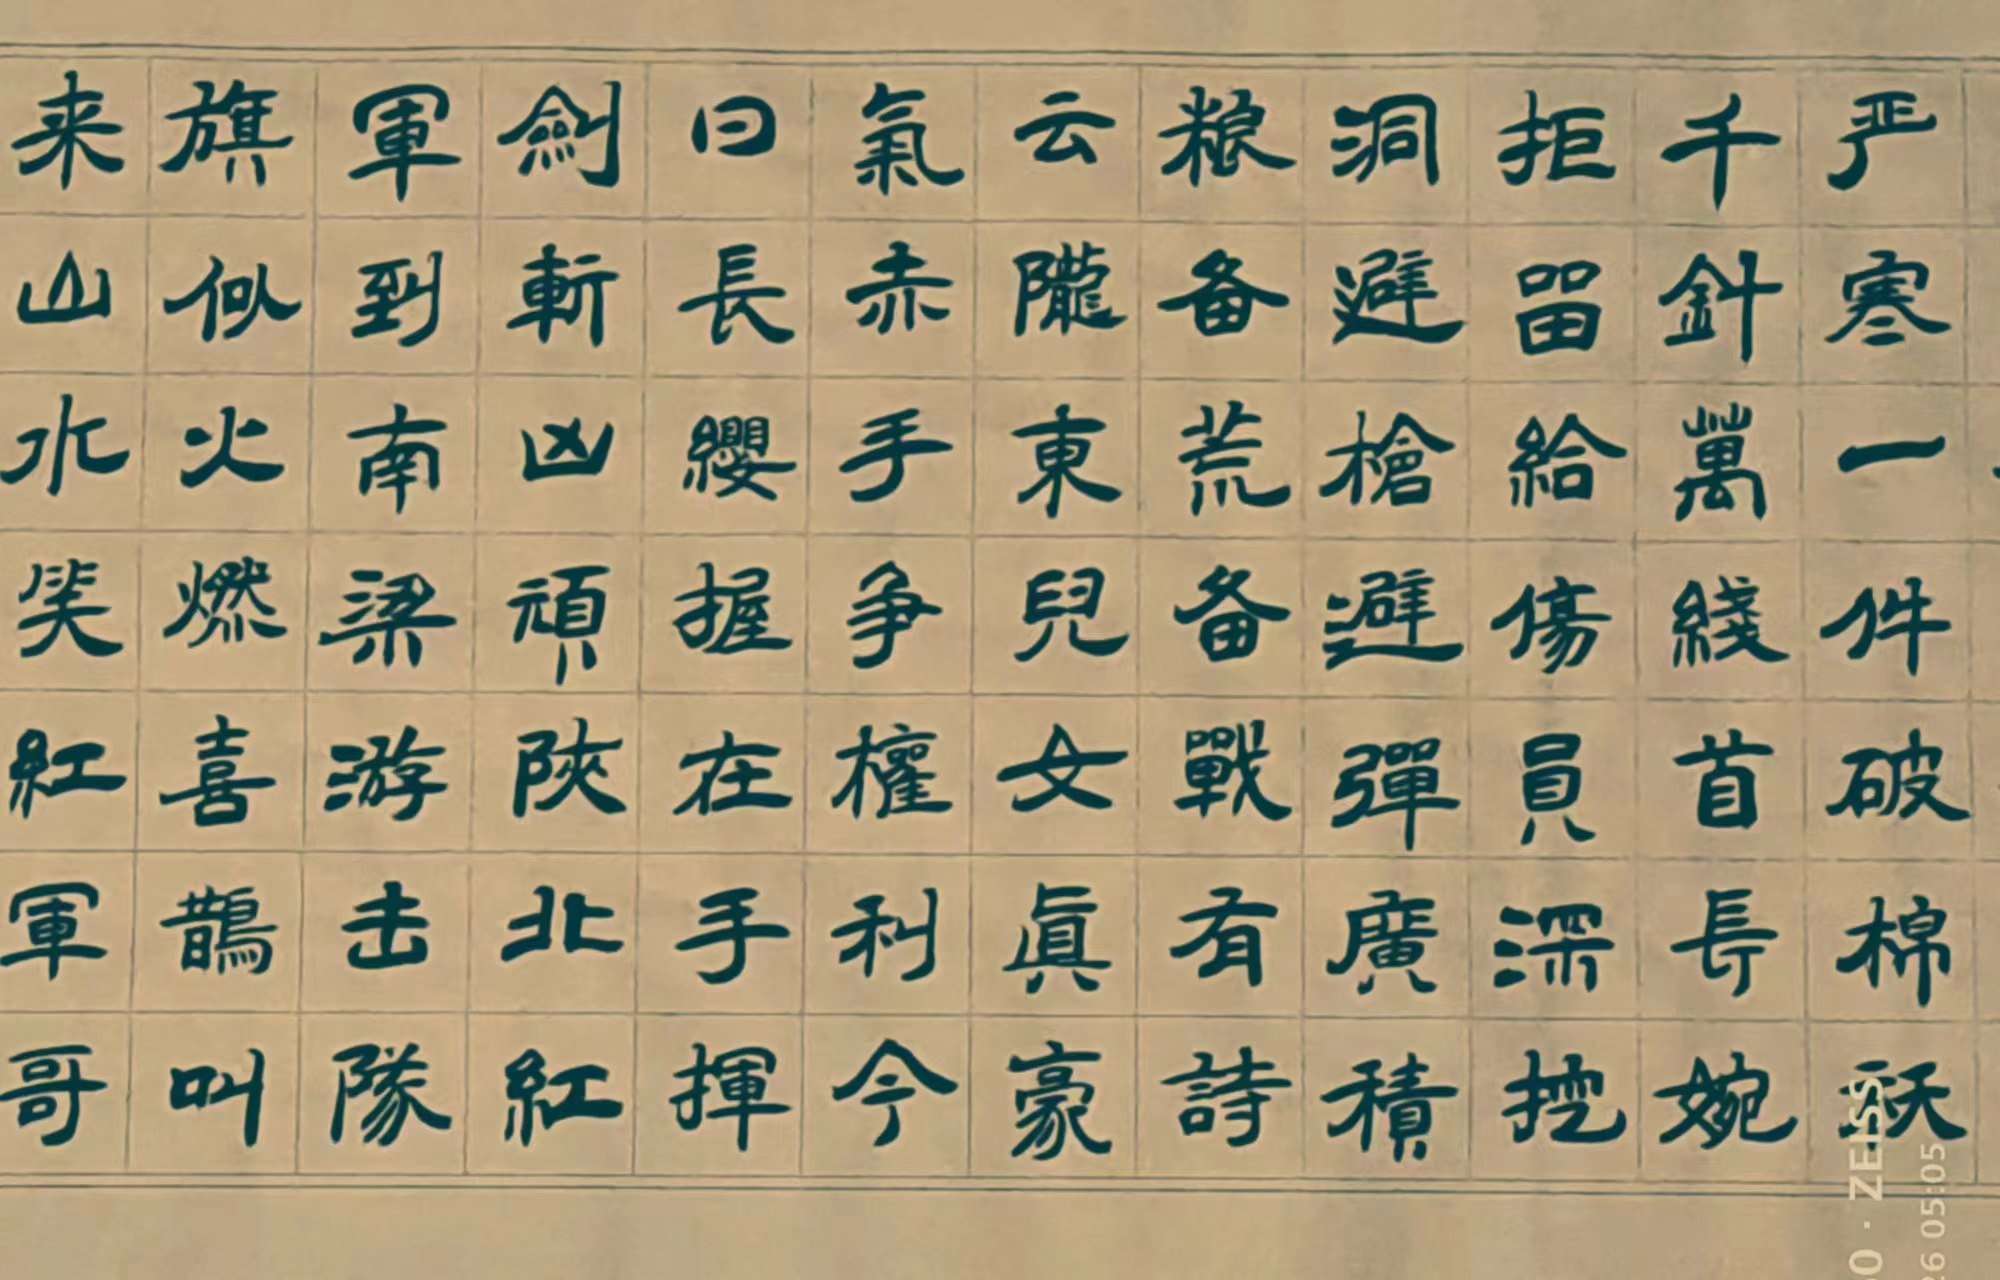 严寒一件破棉袄
千針萬綫首長婉
拒留給傷員深挖
洞避槍避彈廣積
粮备荒备戰有詩
云隴東兒女眞豪
氣赤手争權利今
日長纓握在手揮
劍斬凶頑陝北紅
軍到南梁游击隊
旗似火燃喜鵲叫
来山水笑紅軍哥
0 · ZEISS
26 05:05